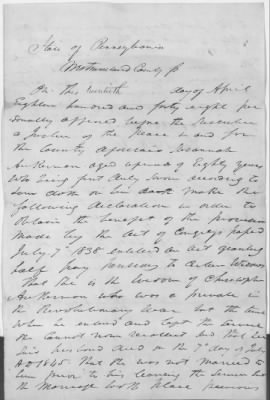 State of Pennsylvania
Westmoreland County ss
On this twentieth day of April
Eighteen hundred and forty eight per
sonally appeared before the Subscriber
a Justice of the Peace in and for
the County aforesaid Susannah
Ankerman aged upwards of Eighty years
who being first duly sworn according to
law doth on her oath make the
following declaration in order to
obtain the benefit of the provision
made by the act of Congress passed
July 7th 1838 entitled an act granting
half pay pensions to certain Widows
That she is the Widow of Christopher
Ankerman who was a private in
the Revolutionary War but the time
when he entered and left the service
she cannot now recollect and that her
said husband died on the 7th day of July
AD 1845 That she was not married to
him prior to his leaving the service but
the marriage took place previous